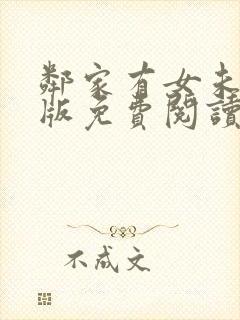 鄰家有女未
版免費閱讀
不成文